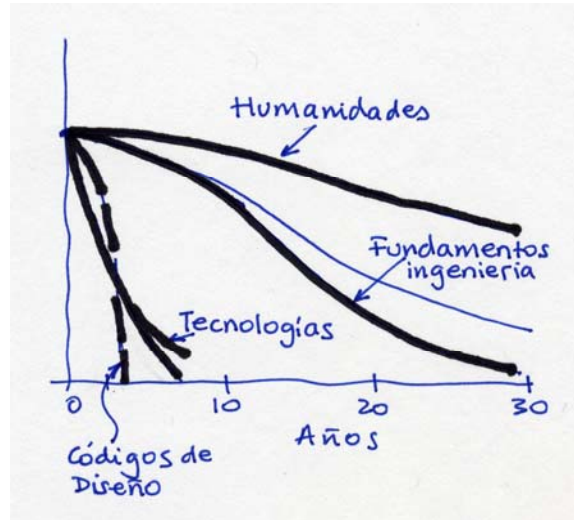 Humanidades
Fundamentos
ingeniería
Tecnologías
0
10
20
30
Años
Códigos de
Diseño